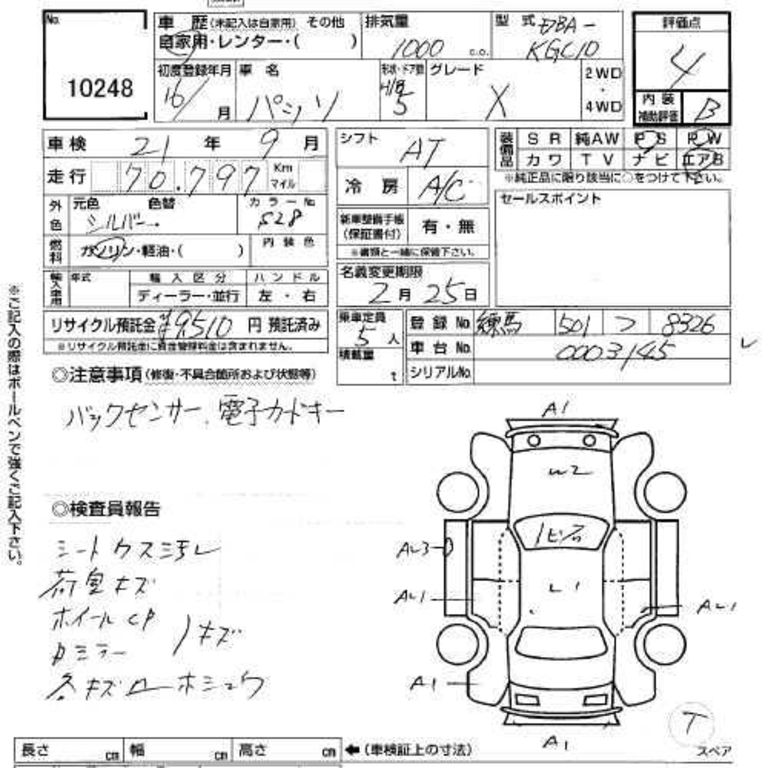 No.
10248
車 歴 (未記入は自家用) その他
自家用・レンター・( )
排気量
1000 c.c.
型 式 DBA-
KGC10
評価点
4
内 装
補助評価 B
初度登録年月
16/ 月
車 名
パッソ
形状・ドア数
H/B
5
グレード
X
2WD
・
4WD
車 検 21 年 9 月
走行 70,797 Km
マイル
外色
元色 色替
シルバー
カラーNo.
S28
燃料
ガソリン・軽油・( )
内 装 色
輸入車用
年式
輸 入 区 分
ディーラー・並行
ハ ン ド ル
左 ・ 右
リサイクル預託金 ¥9510 円 預託済み
※リサイクル預託金に資金管理料金は含まれません。
シフト
AT
冷 房 A/C
新車整備手帳
(保証書付) 有 ・ 無
※書類と一緒に保管下さい。
名義変更期限
2月 25日
乗車定員
5人
積載量
t
装備品
S R 純AW P S P W
カ ワ T V ナ ビ エアB
※純正品に限り該当に○をつけて下さい。
セールスポイント
登 録 No. 練馬 501 つ 8326
車 台 No. 0003145
シリアルNo.
※ご記入の際はボールペンで強くご記入下さい。
◎注意事項 (修復・不具合箇所および状態等)
バックセンサー、電子カードキー
◎検査員報告
シートウス汚レ
荷室キズ
ホイールCP
Dミラー 〃キズ
各キズローホシュウ
A1
W2
AL3
L1
AL1
AL1
A1
A1
T
スペア
長さ cm 幅 cm 高さ cm ←(車検証上の寸法)